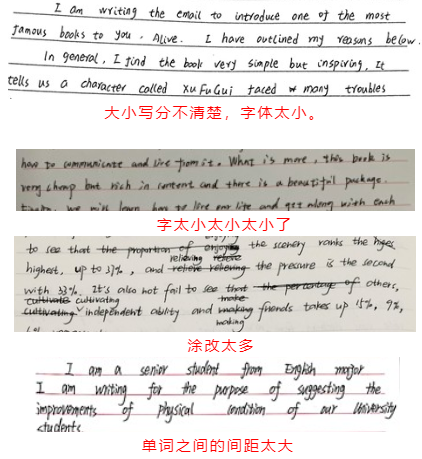 I am writing the email to introduce one of the most
famous books to you, Alive. I have outlined my reasons below.
In general, I find the book very simple but inspiring, It
tells us a character called Xu FuGui faced many troubles
大小写分不清楚，字体太小。
how to communicate and live from it. What is more, this book is
very cheap but rich in content and there is a beautiful package.
we how to live our life and get along with each
字太小太小太小了
enjoying
to see that the proportion of enjoy the scenery ranks the
relieving relieve
highest, up to 37%, and relieve relieving the pressure is the second
with 33%. It's also not fail to see that the percentage of others,
cultivate cultivating make
cultivating independent ability and making friends takes up 15%, 9%,
making
涂改太多
I am a senior student from English major
I am writing for the purpose of suggesting the
improvements of physical condition of our University
students
单词之间的间距太大